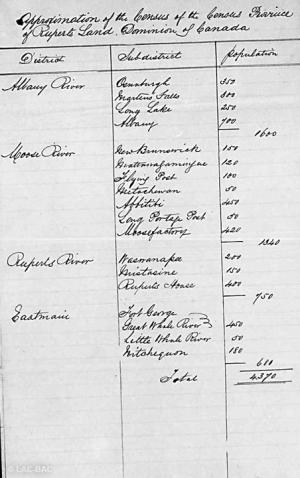 Approximation of the Census of the Census Province
of Rupert's Land, Dominion of Canada
District Subdistrict Population
Albany River Osnaburgh 350
Martens Falls 300
Long Lake 250
Albany 700
1600
Moose River New Brunswick 150
Mattawagamingue 120
Flying Post 100
Metachewan 50
Abbitibi 450
Long Portage Post 50
Moosefactory 420
1340
Ruperts River Waswanapie 200
Mistasine 150
Ruperts House 400
750
Eastmain Fort George
Great Whale River 450
Little Whale River 50
Nitchequon 180
680
Total 4.370
© LAC-BAC